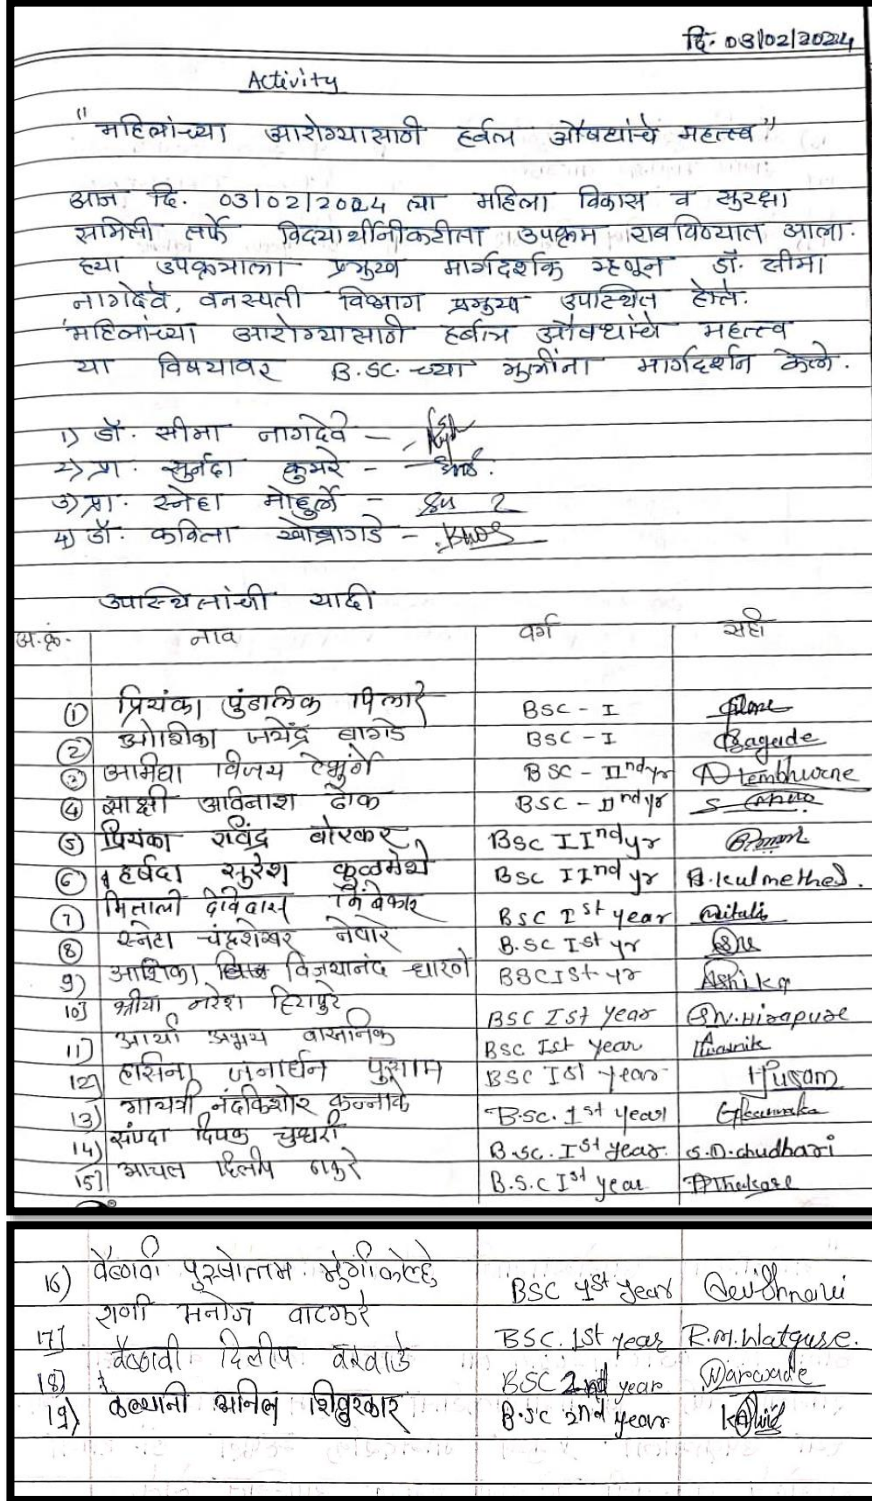 दि. 03/02/2024
Activity
"महिलांच्या आरोग्यासाठी हर्बल औषधांचे महत्त्व"
आज दि. 03/02/2024 ला महिला विकास व सुरक्षा
समिती तर्फे विद्यार्थीनीकरीता उपक्रम राबविण्यात आला.
ह्या उपक्रमाला प्रमुख मार्गदर्शक म्हणून डॉ. सीमा
नागदेवे, वनस्पती विभाग प्रमुख उपस्थित होते.
'महिलांच्या आरोग्यासाठी हर्बल औषधांचे महत्त्व
या विषयावर B.SC. च्या मुलींना मार्गदर्शन केले.
1) डॉ. सीमा नागदेवे -
2) प्रा. सुनंदा कुमरे -
3) प्रा. स्नेहा मोहुर्ले -
4) डॉ. कविता खोब्रागडे -
उपस्थितांची यादी
अ.क्र. नाव वर्ग सही
1 प्रियंका पुंडलिक पिलारे BSC - I
2 जयेंद्र बागडे BSC - I Bagade
3 विजय टेंभुर्णे BSC - IInd yr A tembhurne
4 साक्षी अविनाश ढोक BSC - IInd yr
5 प्रियंका रविंद्र बोरकर BSC IInd yr
6 हर्षदा सुरेश कुळमेथे BSC IInd yr H.kulmethed.
7 मिताली देविदास BSC Ist year mitali
8 स्नेहा चंद्रशेखर नेवारे B.SC Ist yr
9) आशिका विजयानंद धारणे BSC Ist yr Ashika
10] श्रीया नरेश हिरापुरे BSC Ist Year Hirapure
11] आर्या अभय वासनिक BSC Ist Year
12] हसिना जनार्धन पुसाम BSC Ist Year Hpusam
13] गायत्री नंदकिशोर कन्नाके B.sc. 1st year
14] संपदा दिपक चुधरी B.sc. Ist year. S.D.chudhari
15] आचल दिलीप ठाकरे B.S.C Ist year
16) वैष्णवी पुरुषोत्तम BSC 1st Year
17] राणी मनोज वाटगुरे BSC. 1st year R.M.Watgure.
18) वैष्णवी दिलीप वरवाडे BSC 2nd year Warwade
19) कल्यानी अनिल शिवुरकार B.SC 2nd Year